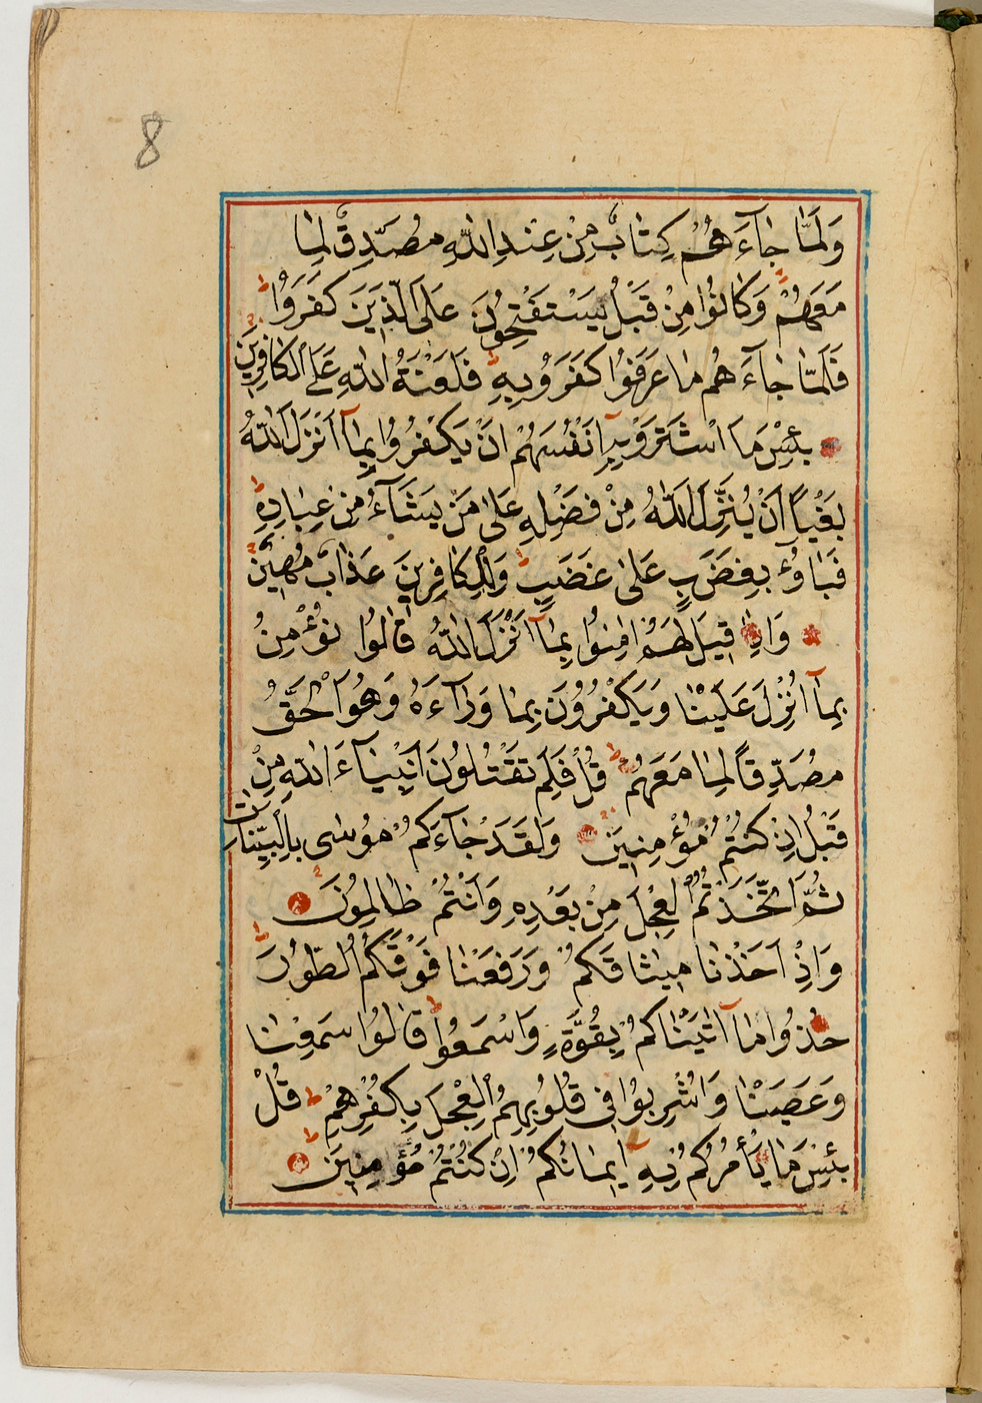 8
وَلَمَّا جَآءَهُمْ كِتَابٌ مِنْ عِنْدِ اللّٰهِ مُصَدِّقٌ لِمَا
مَعَهُمْ وَكَانُوا مِنْ قَبْلُ يَسْتَفْتِحُونَ عَلَى الَّذِينَ كَفَرُوا
فَلَمَّا جَآءَهُم مَا عَرَفُوا كَفَرُوا بِهِ فَلَعْنَةُ اللّٰهِ عَلَى الْكَافِرِينَ
بِئْسَ مَا اشْتَرَوْا بِهِٓ اَنْفُسَهُمْ اَنْ يَكْفُرُوا بِمَآ اَنْزَلَ اللّٰهُ
بَغْيًا اَنْ يُنَزِّلَ اللّٰهُ مِنْ فَضْلِهِ عَلٰى مَنْ يَشَآءُ مِنْ عِبَادِهِ
فَبَاؤُ بِغَضَبٍ عَلٰى غَضَبٍ وَلِلْكَافِرِينَ عَذَابٌ مُهِينٌ
وَاِذَا قِيلَ لَهُمْ اٰمِنُوا بِمَآ اَنْزَلَ اللّٰهُ قَالُوا نُؤْمِنُ
بِمَآ اُنْزِلَ عَلَيْنَا وَيَكْفُرُونَ بِمَا وَرَآءَهُ وَهُوَ الْحَقُّ
مُصَدِّقًا لِمَا مَعَهُمْ قُلْ فَلِمَ تَقْتُلُونَ اَنْبِيَآءَ اللّٰهِ مِنْ
قَبْلُ اِنْ كُنْتُمْ مُؤْمِنِينَ وَلَقَدْ جَآءَكُمْ مُوسٰى بِالْبَيِّنَاتِ
ثُمَّ اتَّخَذْتُمُ الْعِجْلَ مِنْ بَعْدِهِ وَاَنْتُمْ ظَالِمُونَ
وَاِذْ اَخَذْنَا مِيثَاقَكُمْ وَرَفَعْنَا فَوْقَكُمُ الطُّورَ
خُذُوا مَآ اٰتَيْنَاكُمْ بِقُوَّةٍ وَاسْمَعُوا قَالُوا سَمِعْنَا
وَعَصَيْنَا وَاُشْرِبُوا فِى قُلُوبِهِمُ الْعِجْلَ بِكُفْرِهِمْ قُلْ
بِئْسَ مَا يَأْمُرُكُمْ بِهِٓ اِيمَانُكُمْ اِنْ كُنْتُمْ مُؤْمِنِينَ